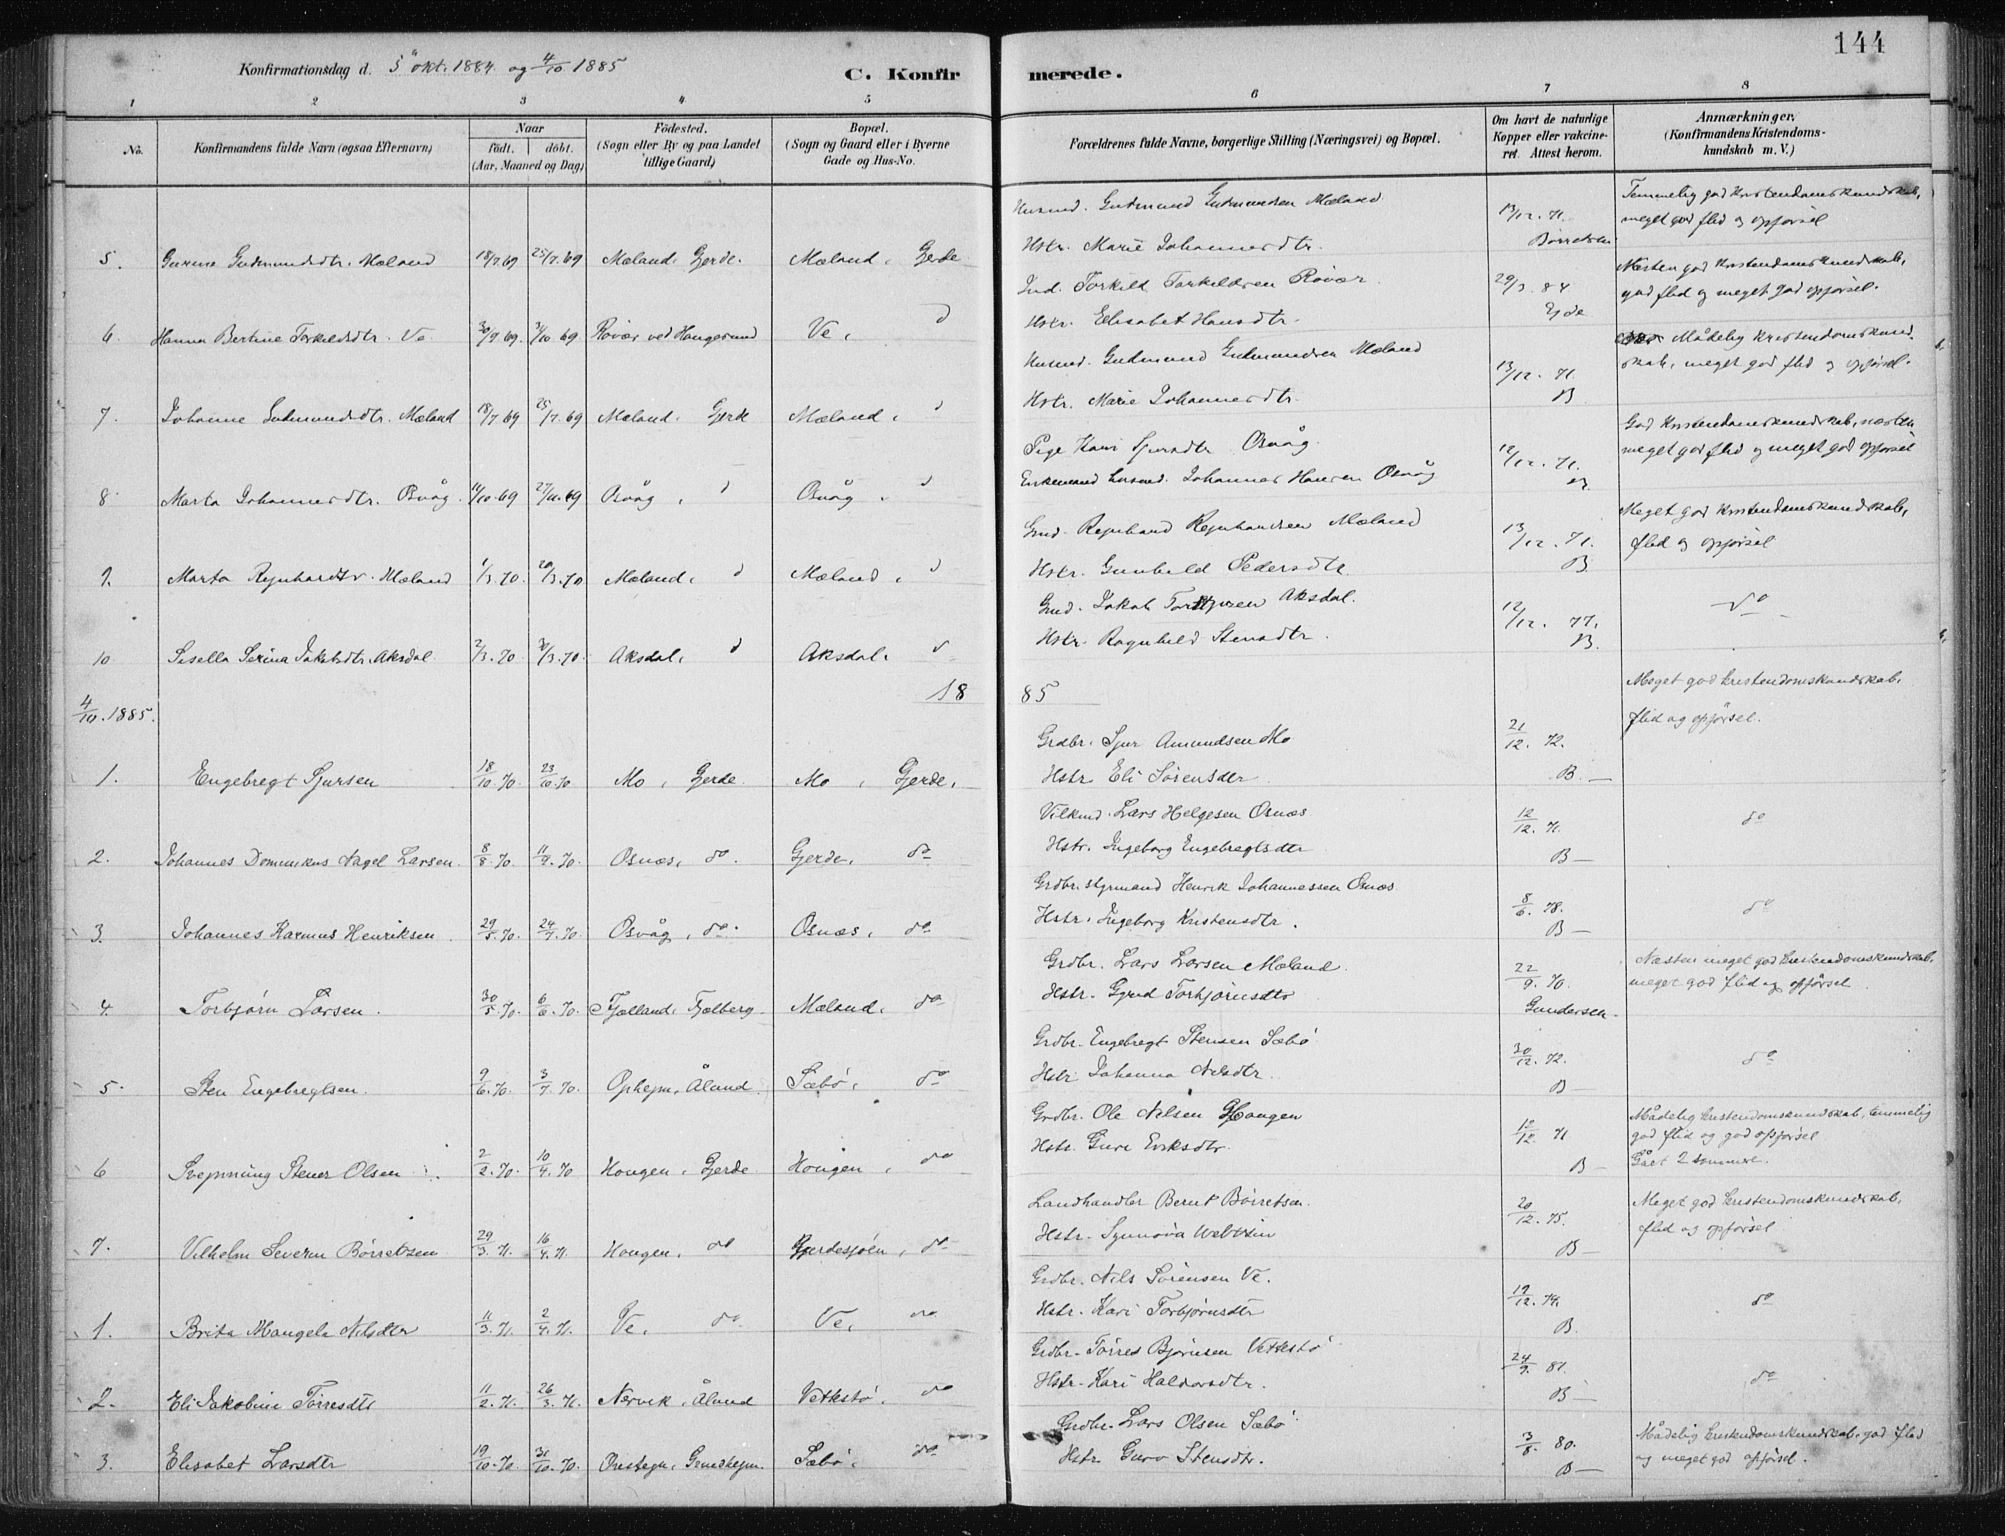 144
Konfirmationsdag d. 5 okt. 1884 og 4/10 1885
C. Konfirmerede.
1 2 3 4 5 6 7 8
No. Konfirmandens fulde Navn (ogsaa Efternavn) Naar født. døbt. (Aar, Maaned og Dag) Födested. (Sogn eller By og paa Landet tillige Gaard) Bopæl. (Sogn og Gaard eller i Byerne Gade og Hus-No. Forældrenes fulde Navne, borgerlige Stilling (Næringsvei) og Bopæl. Om havt de naturlige Kopper eller vakcineret. Attest herom. Anmærkninger, (Konfirmandens Kristendomskundskab m. V.)
Husmd. Gudmund Gudmundsen Mæland 13/12. 71. Temmelig god kristendomskundskab,
meget god flid og opførsel
5. Gudmundsdtr. Mæland 18/7 69 25/7. 69 Mæland, Gerde. Mæland, Gerde Hstr. Marie Johannesdtr. Børretsen
Ind. Torkild Torkildsen Røvær 29/3. 84 Næsten god kristendomskundskab,
god flid og meget god opførsel.
6. Hanna Bertine Torkildsdtr. Ve 30/9 69. 31/10 69 Røvær ved Haugesund Ve, d Hstr. Elisabet Hansdtr. Eide
Husmd. Gudmund Gudmundsen Mæland 13/12. 71. Mådelig kristendomskund-
skab, meget god flid og opførsel.
7. Johanne Gudmundsdtr. Mæland 18/7 69 25/7. 69 Mæland, Gjerde Mæland, d Hstr. Marie Johannesdtr. B
Pige Kari Sjursdtr Osvåg. 12/12. 71. God kristendomskundskab, næsten
meget god flid og meget god opførsel
8. Marta Johannesdtr. Osvåg. 11/10. 69 27/11. 69 Osvåg, d Osvåg, d Enkemand husmd. Johannes Hansen Osvåg
Gmd. Rejnhard Rejnhardsen Mæland 13/12. 71. Meget god kristendomskundskab,
flid og opførsel
9. Marta Rejnhardtr. Mæland 1/3. 70 20/3. 70 Mæland, d Mæland, d Hstr. Gunhild Pedersdtr B.
Gmd. Jakob Aksdal. 12/12. 77. do
10 Sisella Serina Jakobsdtr. Aksdal 2/3. 70 Aksdal, d Aksdal, d Hstr. Ragnhild Stensdtr. B.
4/10. 1885. 1885
Meget god kristendomskundskab,
flid og opførsel.
Grdbr. Sjur Amundsen Mo 21/12. 72.
1. Engebregt Sjursen 18/10 70. 23/10 70 Mo, Gjerde Mo, Gjerde, Hstr Eli Sørensdtr B. —
Lars Helgesen Osnæs 12/12. 71. do
2. Johannes Dominikus Nagel Larsen 8/8. 70. 11/9. 70. Osnæs, do. Gjerde, do Hstr. Ingeborg Engebregtsdtr B —
Grdbr. styrmand Henrik Johannessen Osnæs 8/6. 78. do
3. Johannes Rasmus Henriksen 29/5. 70. 24/7. 70. Osvåg, do. Osnæs, do Hstr. Ingeborg Kristensdtr. B —
Grdbr. Lars Larsen Mæland 22/9. 70. Næsten meget god kristendomskundskab,
meget god flid og opførsel
4. Torbjørn Larsen. 30/5. 70. 6/6. 70. Fjælland, Fjælberg. Mæland, do Hstr. Gjrid Torbjørnsdtr Gundersen.
Grdbr. Engebregt Stensen Sæbø 30/12. 72. do
5. Sten Engebregtsen. 9/6. 70. 3/7. 70. Ophejm, Åland. Sæbø, do Hstr Johanna Nilsdtr. B —
Grdbr. Ole Nilsen Hougen 12/12. 71 Mådelig kristendomskundskab, temmelig
god flid og god opførsel
Gået 2 somre.
6 Svejnung Stener Olsen 2/2. 70. 10/4. 70 Hougen, Gjerde. Hougen, do Hstr. Guri Eriksdtr. B —
Landhandler Bernt Børretsen 20/12. 75. Meget god kristendomskundskab,
flid og opførsel
7. Vilhelm Severin Børretsen 29/3. 71. 16/4. 71. Hougen, do Gjerdesjøen, do Hstr. Synnøva B —
Grdbr. Nils Sørensen Ve. 19/12. 74. do
1. Brita Mangela Nilsdtr 11/3. 71. 2/4. 71. Ve, do Ve, do Hstr. Kari Torbjørnsdtr B.
Grdbr. Tørres Bjørnsen Vetkstø 24/9. 81. do
2. Eli Jakobine Tørresdtr 11/2. 71. 26/3. 71. Nervik, Åland Vetkstø, do Hstr. Kari Haldorsdtr. B —
Grdbr. Lars Olsen Sæbø 3/8. 80. Mådelig kristendomskundskab, god flid
og meget god opførsel.
3. Elisabet Larsdtr 19/10. 70 31/10. 70. Sæbø, do Hstr Guro Stensdtr. B —